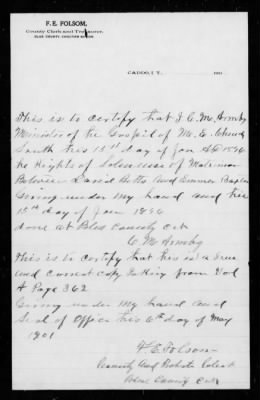 F. E. FOLSOM,
County Clerk and Treasurer.
BLUE COUNTY, CHOCTAW NATION
CADDO, I. T., 190
This is to certify that I C. M. Armby
Minister of the Gospil of M. E. Church
South this 15th day of Jan AD 1896
he Rights of Solemnise of Matrimon
Between David Botts And Emmer
Given under my hand and this
15th day of Jan 1896
done at Blue County C.N.
C M Armby
This is to certify that this is a true
and correct copy taking from Vol
A Page 362
Giving under my hand and
Seal of Office this 6th day of May
1901
F. E. Folsom
County And Probate Clerk
Blue County C.N.